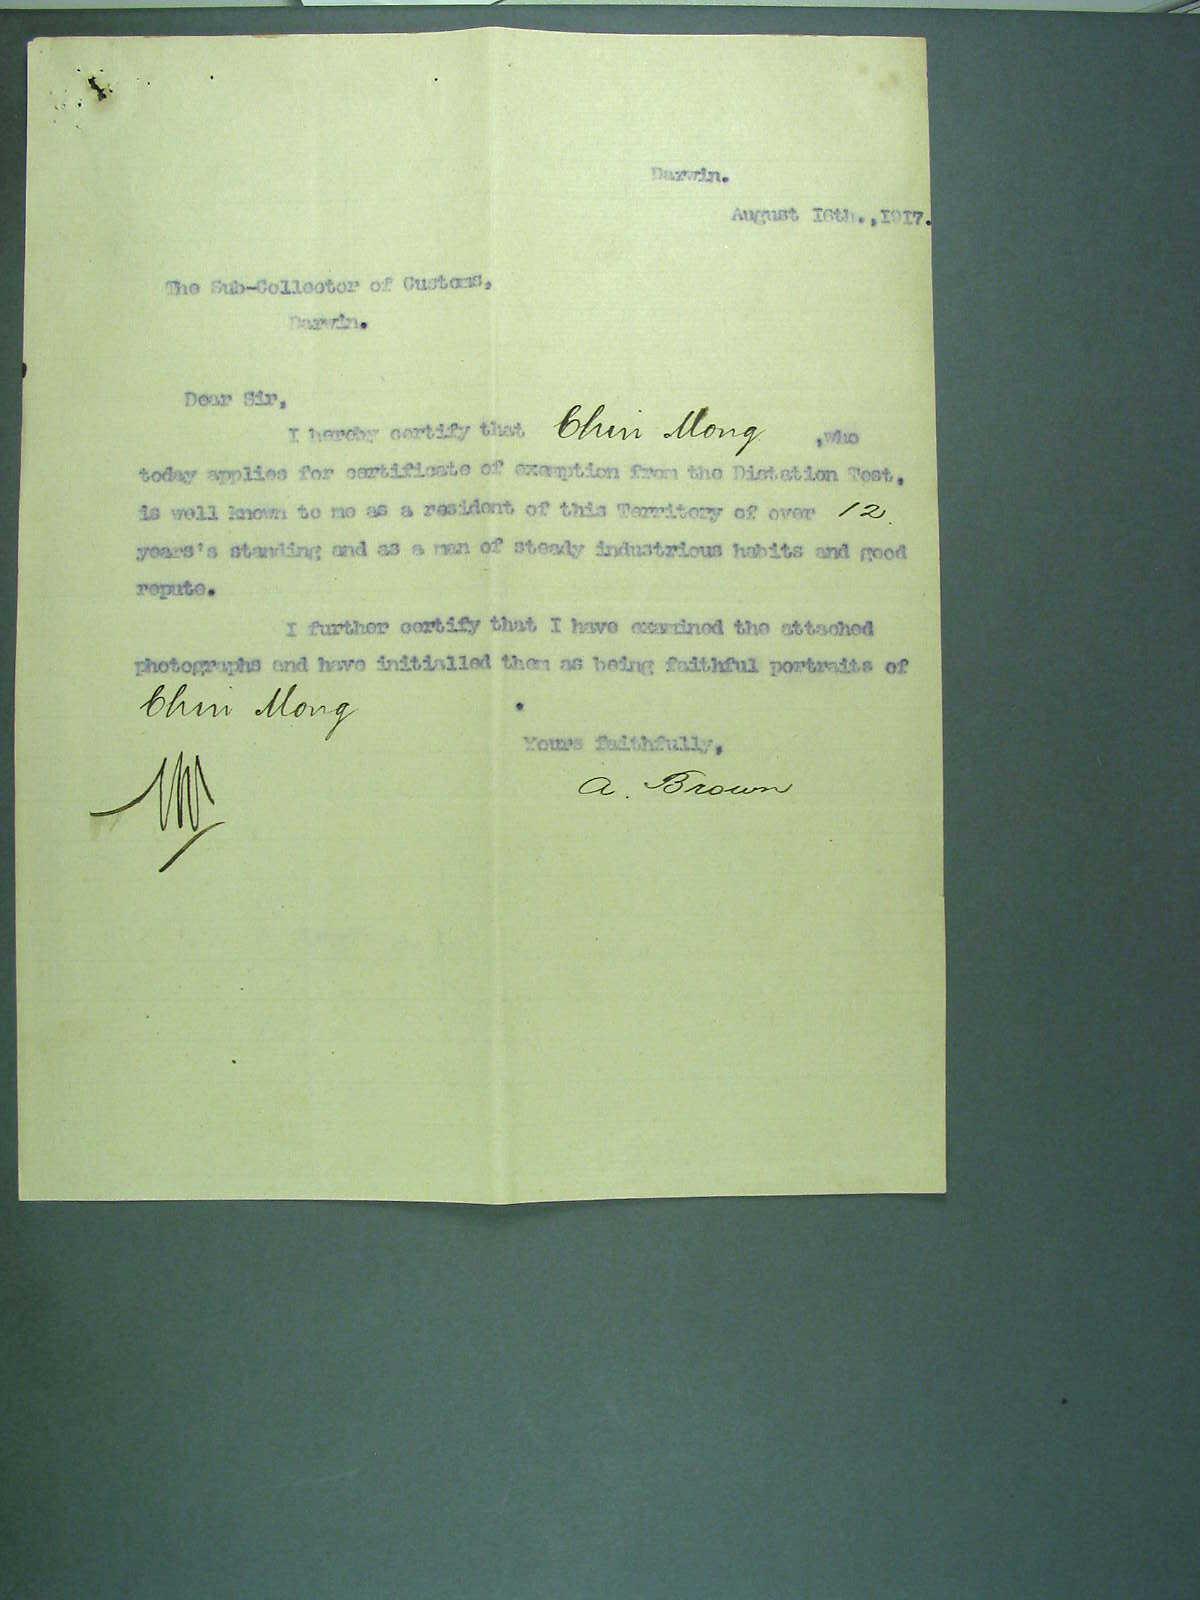 Darwin.
August 16th.,1917.
The Sub-Collector of Customs,
Darwin.
Dear Sir,
I hereby certify that Chin Mong ,who
today applies for certificate of exemption from the Dictation Test,
is well known to me as a resident of this Territory of over 12
years's standing and as a man of steady industrious habits and good
repute.
I further certify that I have examined the attached
photographs and have initialled them as being faithful portraits of
Chin Mong .
Yours faithfully,
A. Brown